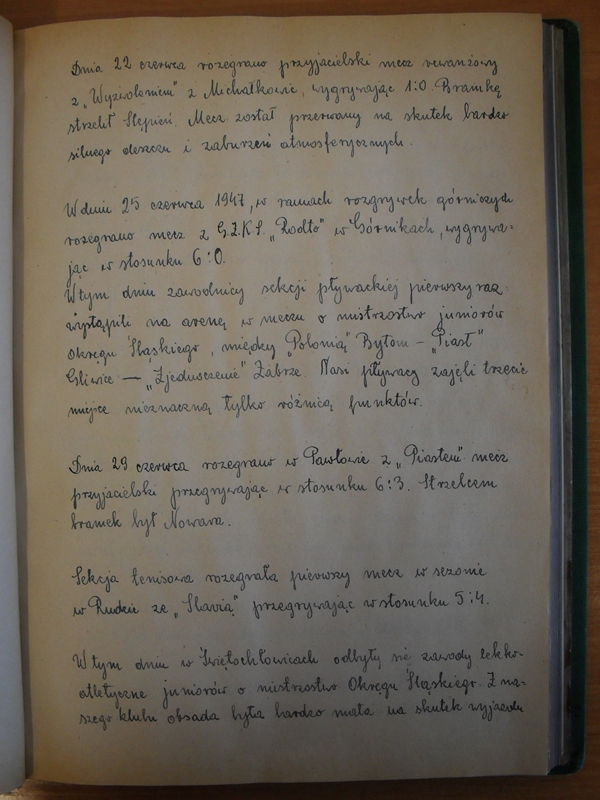 Dnia 22 czerwca rozegrano przyjacielski mecz rewanżowy
z „Wyzwoleniem" z Michałkowic, wygrywając 1:0. Bramkę
strzelił Stępień. Mecz został przerwany na skutek bardzo
silnego deszczu i zaburzeń atmosferycznych.
W dniu 25 czerwca 1947, w ramach rozgrywek górniczych
rozegrano mecz z G.Z.K.S. „Rodło" w Górnikach, wygrywa-
jąc w stosunku 6:0.
W tym dniu zawodnicy sekcji pływackiej pierwszy raz
wystąpili na arenę w meczu o mistrzostwo juniorów
Okręgu Śląskiego, między „Polonią" Bytom – „Piast"
Gliwice — „Zjednoczenie" Zabrze. Nasi pływacy zajęli trzecie
miejsce nieznaczną tylko różnicą punktów.
Dnia 29 czerwca rozegrano w Pawłowie z „Piastem" mecz
przyjacielski przegrywając w stosunku 6:3. Strzelcem
bramek był Nowara.
Sekcja tenisowa rozegrała pierwszy mecz w sezonie
w Rudzie ze „Slavią" przegrywając w stosunku 5:4.
W tym dniu w Świętochłowicach odbyły się zawody lekko-
atletyczne juniorów o mistrzostwo Okręgu Śląskiego. Z na-
szego klubu obsada była bardzo mała na skutek wyjazdu